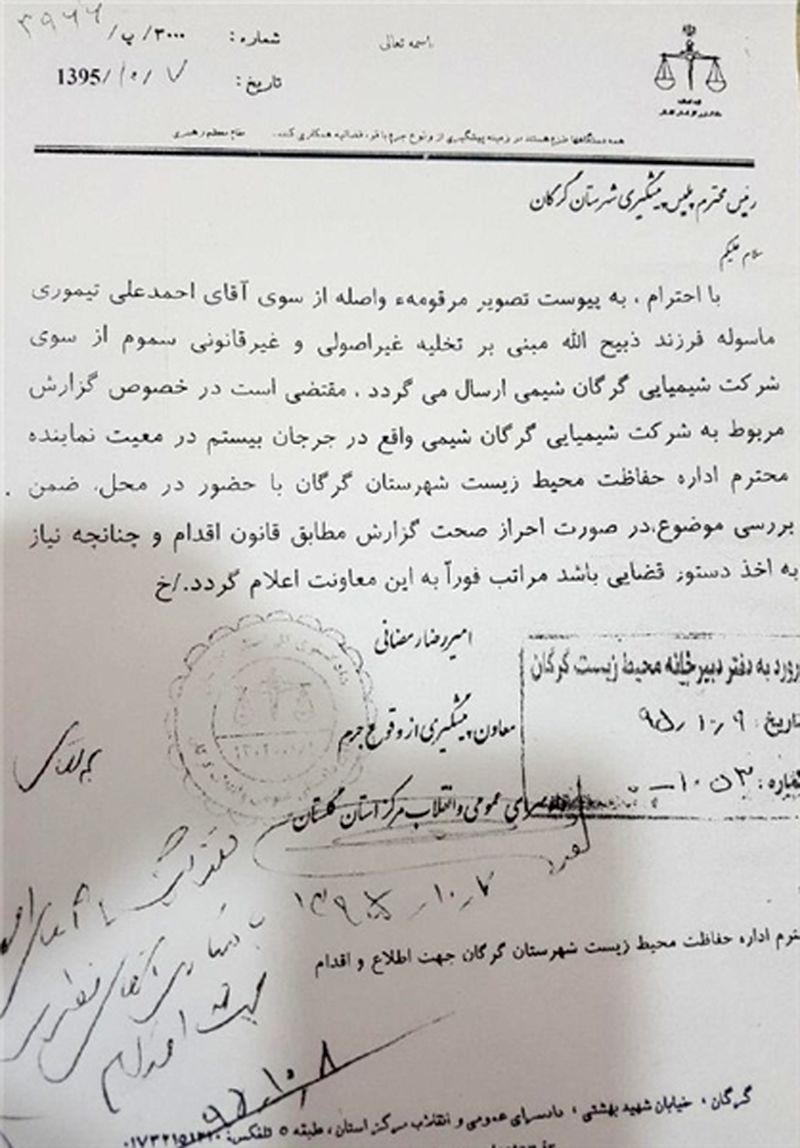 باسمه تعالی
شماره: ۳۰۰۰/پ/
تاریخ: 1395/۱۰/۷
همه دستگاهها ملزم هستند در زمینه پیشگیری از وقوع جرم با قوه قضائیه همکاری کنند. مقام معظم رهبری
رئیس محترم پلیس پیشگیری شهرستان گرگان
سلام علیکم
با احترام ، به پیوست تصویر مرقومه واصله از سوی آقای احمدعلی تیموری
ماسوله فرزند ذبیح الله مبنی بر تخلیه غیراصولی و غیرقانونی سموم از سوی
شرکت شیمیایی گرگان شیمی ارسال می گردد . مقتضی است در خصوص گزارش
مربوط به شرکت شیمیایی گرگان شیمی واقع در جرجان بیستم در معیت نماینده
محترم اداره حفاظت محیط زیست شهرستان گرگان با حضور در محل، ضمن
بررسی موضوع،در صورت احراز صحت گزارش مطابق قانون اقدام و چنانچه نیاز
به اخذ دستور قضایی باشد مراتب فوراً به این معاونت اعلام گردد./خ
امیررضا رمضانی
معاون پیشگیری از وقوع جرم
دادسرای عمومی و انقلاب مرکز استان گلستان
ورود به دفتر دبیرخانه محیط زیست گرگان
تاریخ: ۹۵,۱۰,۹
شماره:
۱۳۹۵-۱۰-۷
محترم اداره حفاظت محیط زیست شهرستان گرگان جهت اطلاع و اقدام
جهت اقدام
۹۵,۱۰,۸
گرگان ، خیابان شهید بهشتی ، دادسرای عمومی و انقلاب مرکز استان، طبقه ۵ تلفکس: